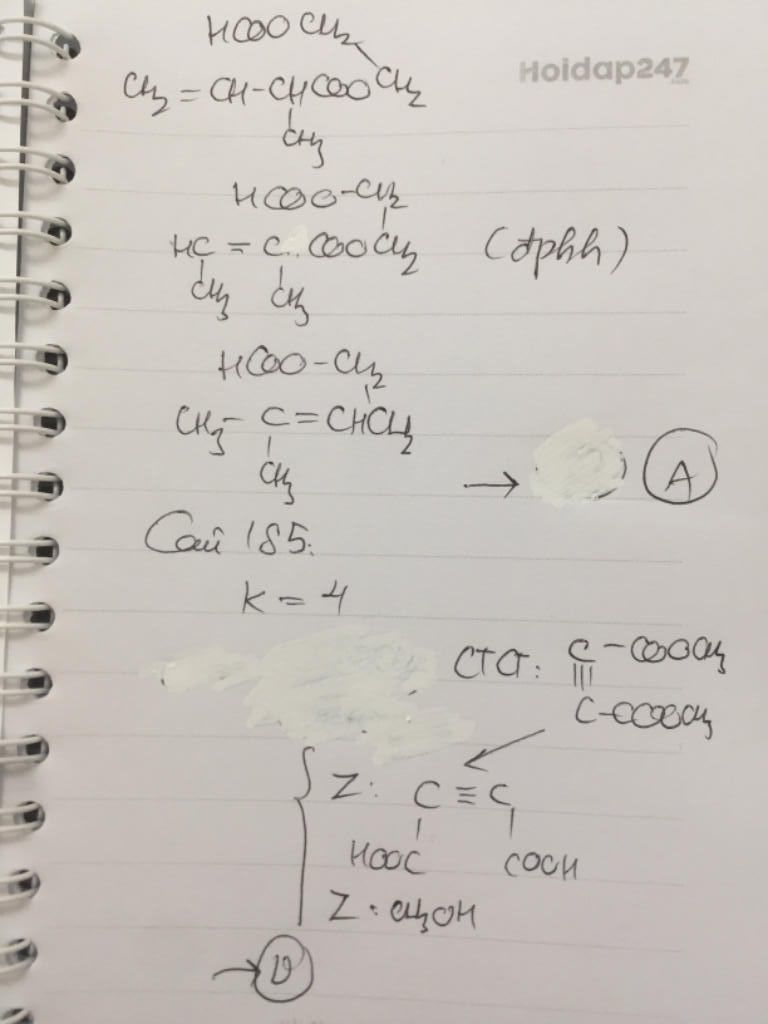 HCOOCH2
Hoidap247
CH2=CH-CHCOOCH2
CH3
HCOO-CH2
HC = C COOCH2 (đphh)
CH3 CH3
HCOO-CH2
CH3- C=CHCH2
CH3
→ A
Câu 185:
K = 4
CTCT: C -COOCH3
|||
C-COOCH3
Z: C ≡ C
HOOC COOH
Z: CH3OH
→ D